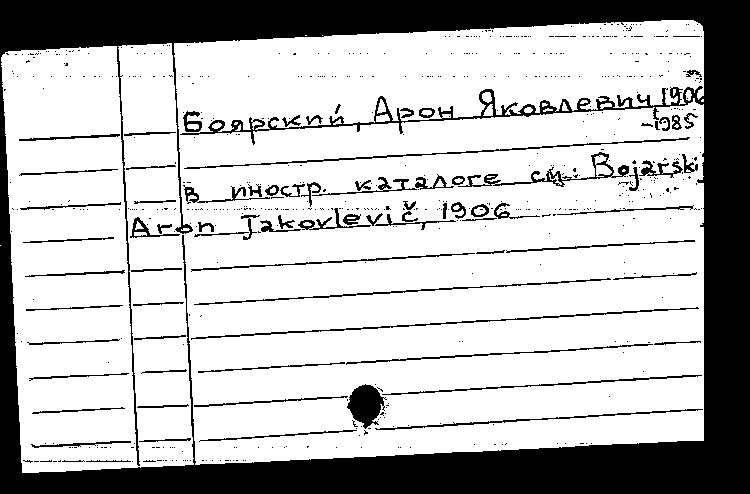 Боярский, Арон Яковлевич, 1906
-1985
в иностр. каталоге см.: Bojarskij
Aron Jakovlevič, 1906